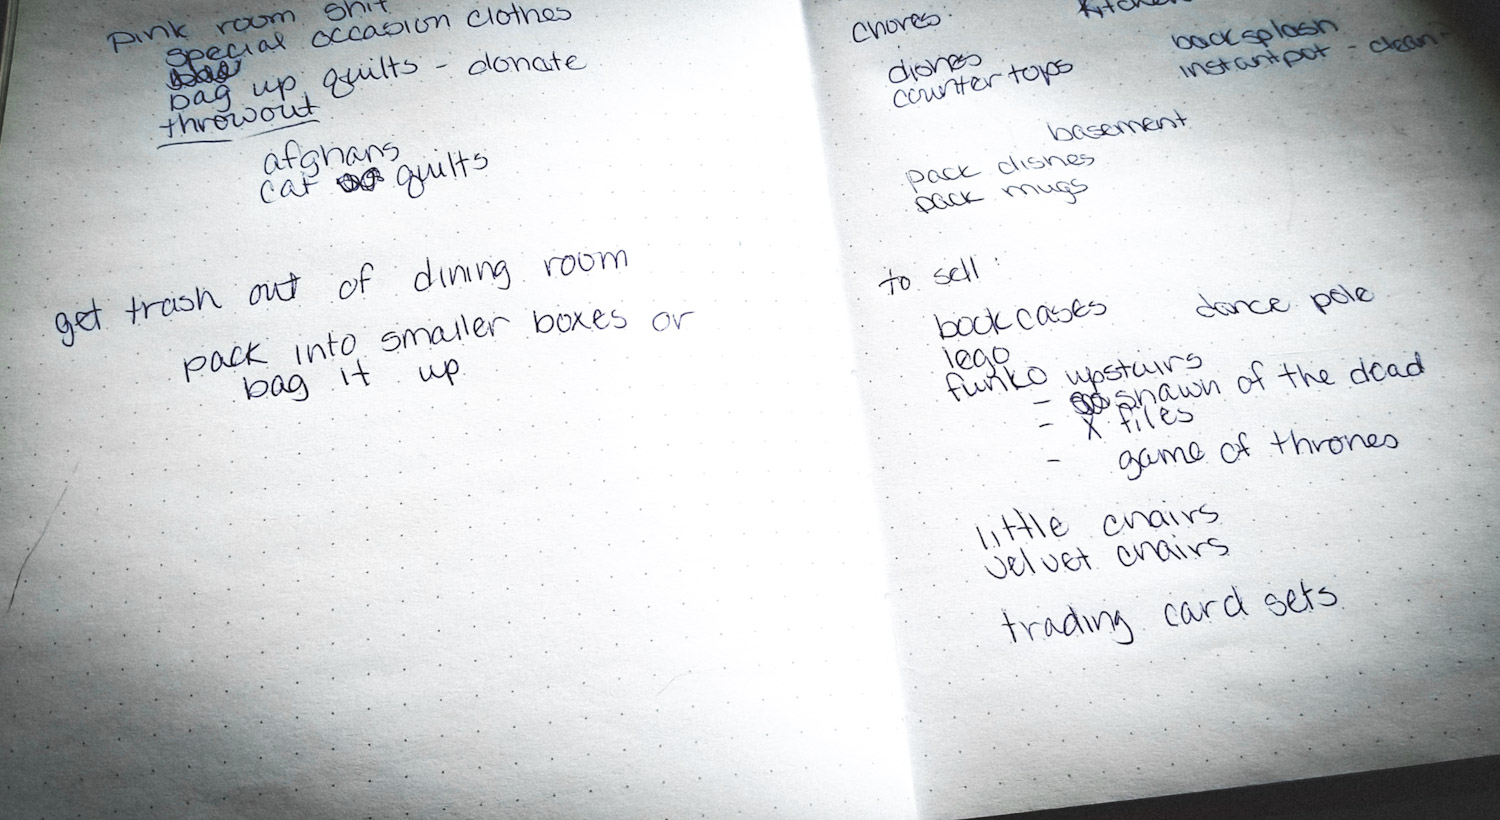 pink room shit
special occasion clothes
bag up quilts - donate
throwout
afghans
cat quilts
get trash out of dining room
pack into smaller boxes or
bag it up
chores: kitchen
dishes backsplash
countertops instantpot - clean
basement
pack dishes
pack mugs
to sell:
bookcases dance pole
lego
funko upstairs
- shawn of the dead
- x files
- game of thrones
little chairs
velvet chairs
trading card sets